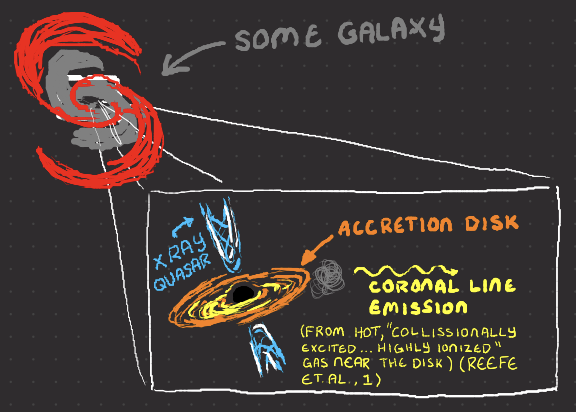 SOME GALAXY
ACCRETION DISK
XRAY
QUASAR
CORONAL LINE
EMISSION
(FROM HOT, "COLLISSIONALLY
EXCITED... HIGHLY IONIZED"
GAS NEAR THE DISK) (REEFE
ET. AL., 1)